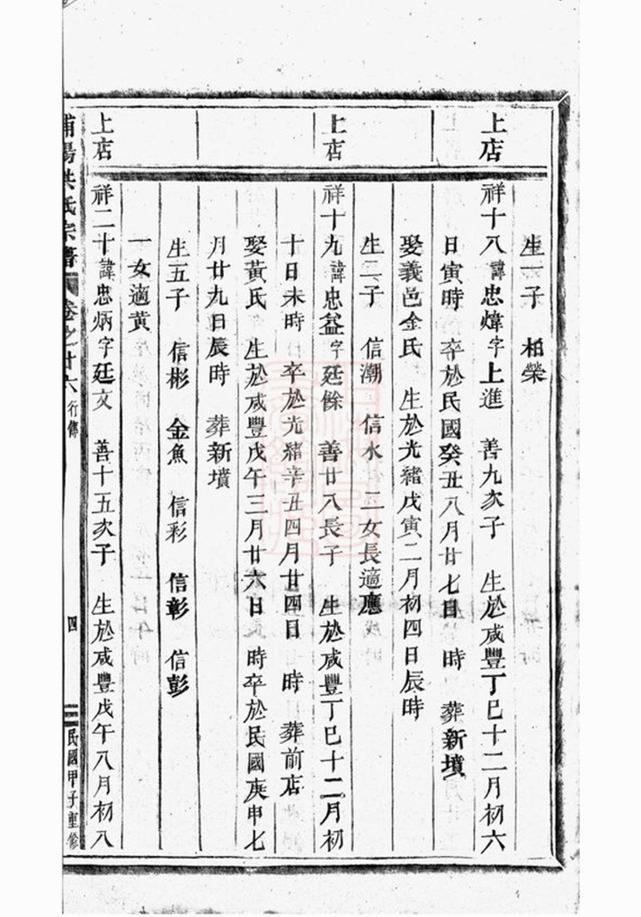 生一子　柏榮
上店　祥十八諱忠煒字上進　善九次子　生於咸豐丁巳十二月初六
日寅時　卒於民國癸丑八月廿七日　時　葬新墳
娶義邑金氏　生於光緒戊寅二月初四日辰時
生二子　信潮　信水　二女長適應
上店　祥十九諱忠益字廷餘　善廿八長子　生於咸豐丁巳十二月初
十日未時　卒於光緒辛丑四月廿四日　時　葬前店
娶黃氏　生於咸豐戊午三月廿六日　時卒於民國庚申七
月廿九日辰時　葬新墳
生五子　信彬　金魚　信彩　信彰　信彭
一女適黃
上店　祥二十諱忠炳字廷文　善十五次子　生於咸豐戊午八月初八
浦陽洪氏宗譜　卷之廿六　行傳　四　民國甲子重修